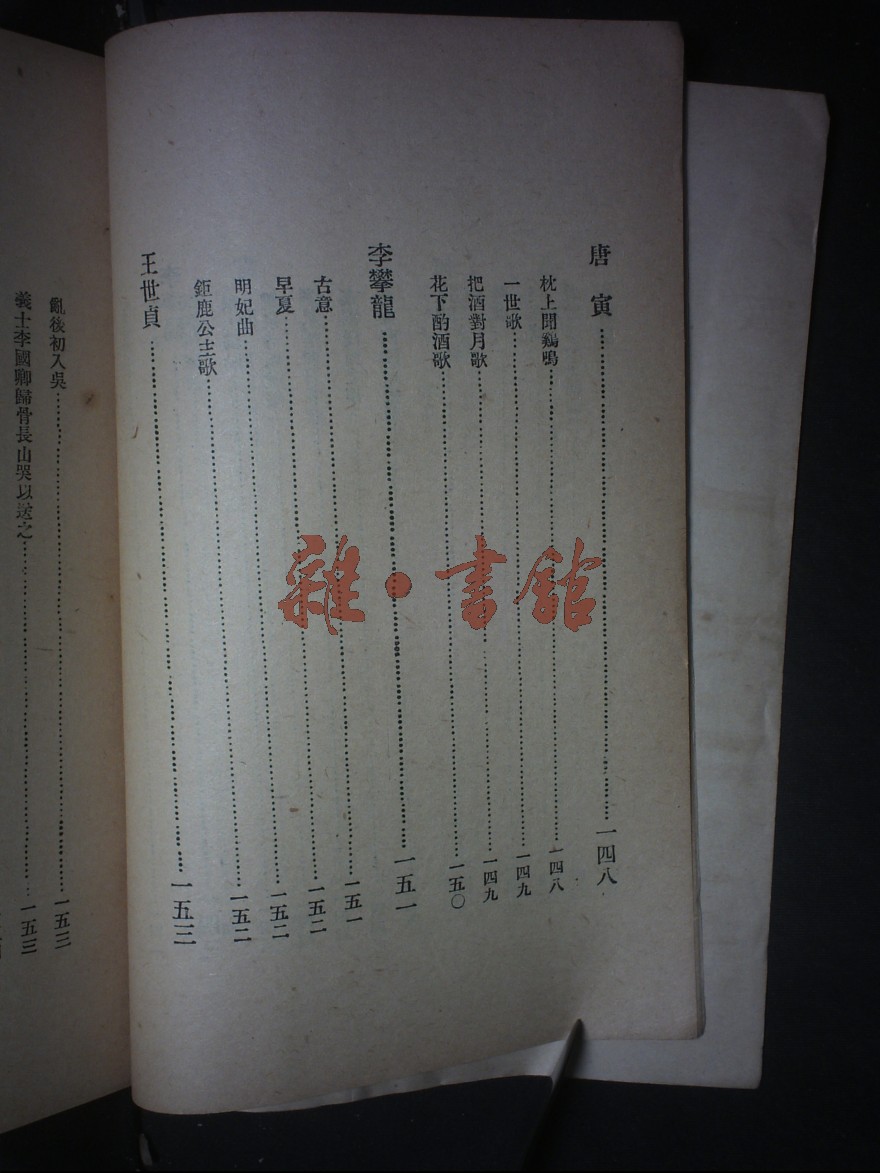 唐寅……一四八
枕上聞鷄鳴……一四八
一世歌……一四九
把酒對月歌……一四九
花下酌酒歌……一五〇
李攀龍……一五一
古意……一五一
早夏……一五二
明妃曲……一五二
鉅鹿公主歌……一五二
王世貞……一五三
亂後初入吳……一五三
義士李國卿歸骨長山哭以送之……一五三
雜·書館